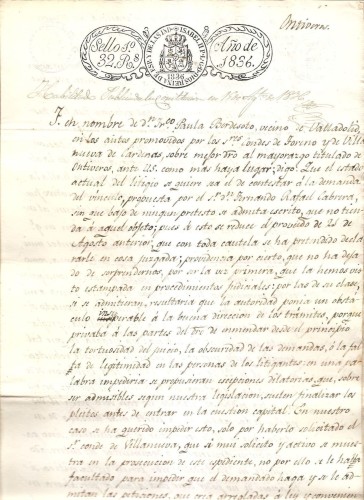 Ontiveros.
Sello 3º
32. Rs.
ISABEL 2ª P.R.G. DE DIOS
1836
Año de
1836.
F. en nombre de Dn. Frco. Paula Bordesoto, vecino de Valladolid,
en los autos promovidos por los Sres. Condes de Toreno y de Villa
nueva de Cardenas, sobre mejor dro al mayorazgo titulado de
Ontiveros, ante US. como mas haya lugar; digo: Que el estado
actual del litigio se quiere sea el de contestar á la demanda
del vinculo, propuesta por el Sr. Dn. Fernando Rafael Cabrera,
sin que bajo de ningun pretesto se admita escrito, que no tien-
da á aquel objeto; pues á esto se reduce el proveido de 25 de
Agosto anterior, que con toda cautela se ha pretendido decla-
rarle en cosa juzgada; providencia por cierto, que no ha deja-
do de sorprendernos, por ser la vez primera, que la hemos vis-
to estampada en procedimientos judiciales: por las de su clase,
si se admitieran, resultaria que la autoridad ponia un obsta-
culo insuperable á la buena direccion de los tramites, porque
privaba á las partes del dro de enmendar desde el principio
la tortuosidad del juicio, la obscuridad de las demandas, ó la fal-
ta de legitimidad en las personas de los litigantes: en una pa-
labra impediria se propusieran escepciones dilatorias que, sobre
ser admisibles segun nuestra legislacion, suelen finalizar los
pleitos antes de entrar en la cuestion capital. En nuestro
caso se ha querido impedir esto, solo por haberlo solicitado el
Sr. conde de Villanueva, que si mui solicito y activo se mues-
tra en la prosecucion de este espediente, no por ello se le halla
facultado para impedir que el demandado haga y se le ad-
mitan las estaciones, que sea arreglados á ley y convenien-